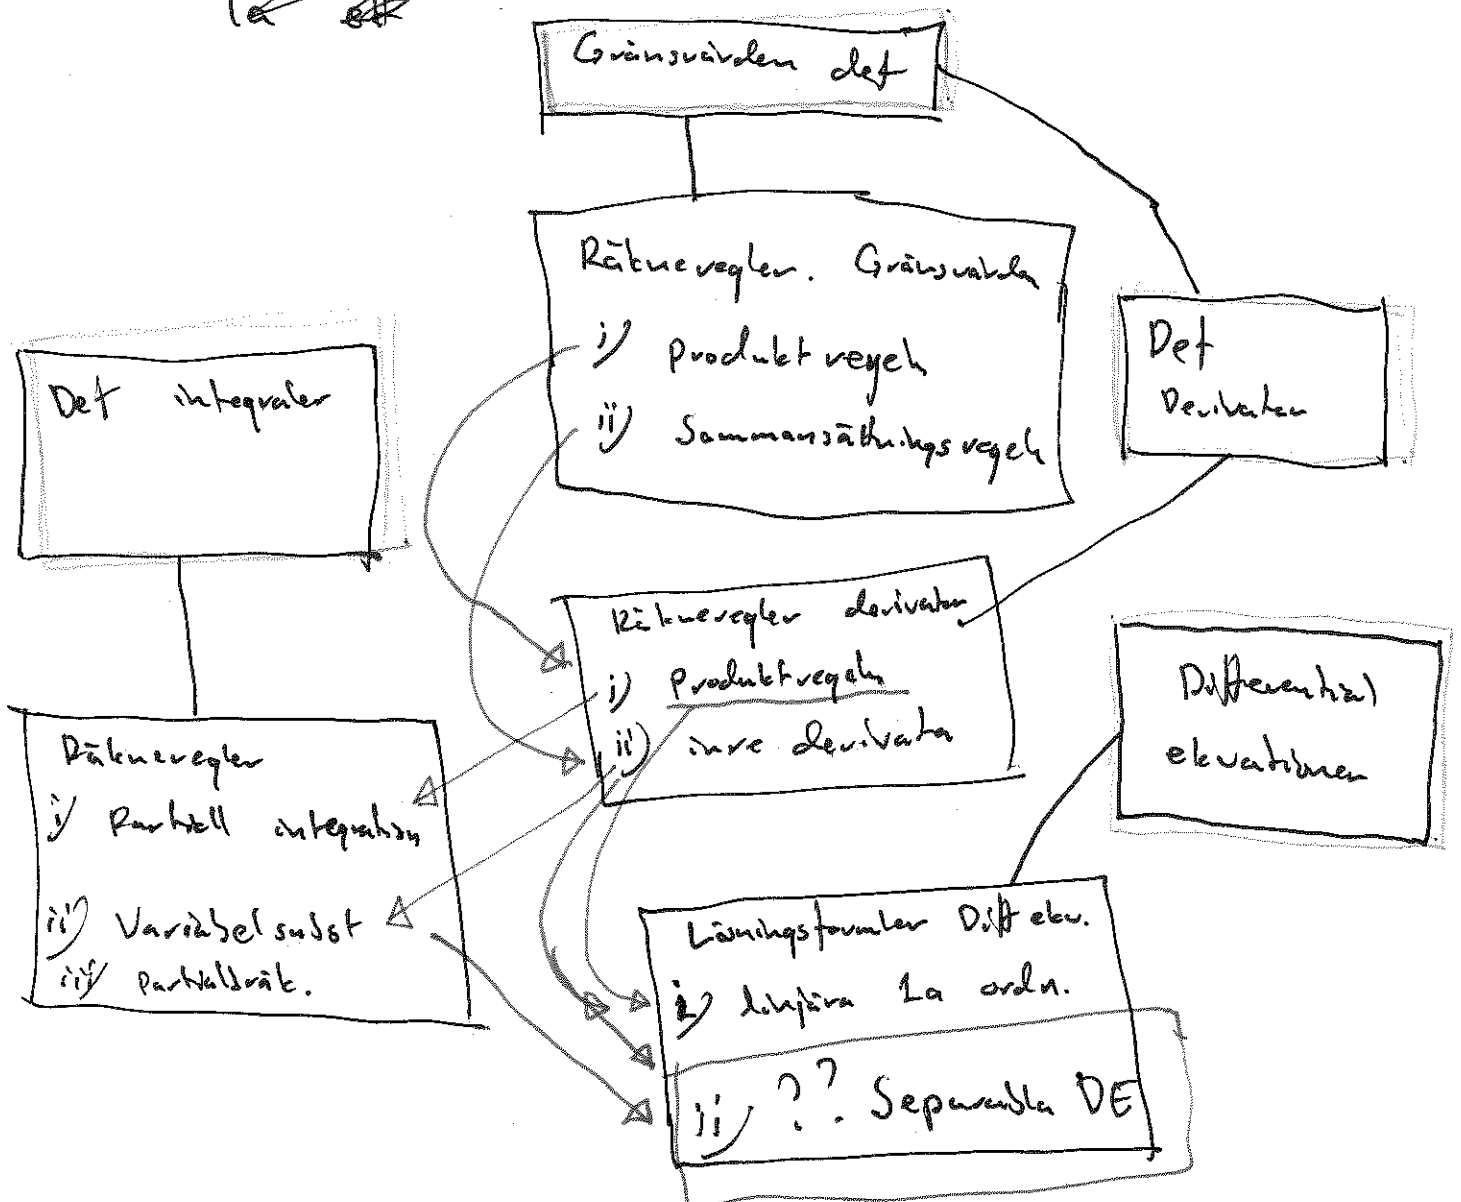 Gränsvärden def
Räkneregler. Gränsvärden
i) Produktregeln
ii) Sammansättningsregeln
Def
Derivatan
Def integraler
Räkneregler derivatan
i) Produktregeln
ii) inre derivata
Differential
ekvationen
Räkneregler
i) Partiell integration
ii) Variabelsubst
iii) Partialbråk.
Lösningsformler Diff ekv.
i) linjära 1a ordn.
ii) ?? Separabla DE